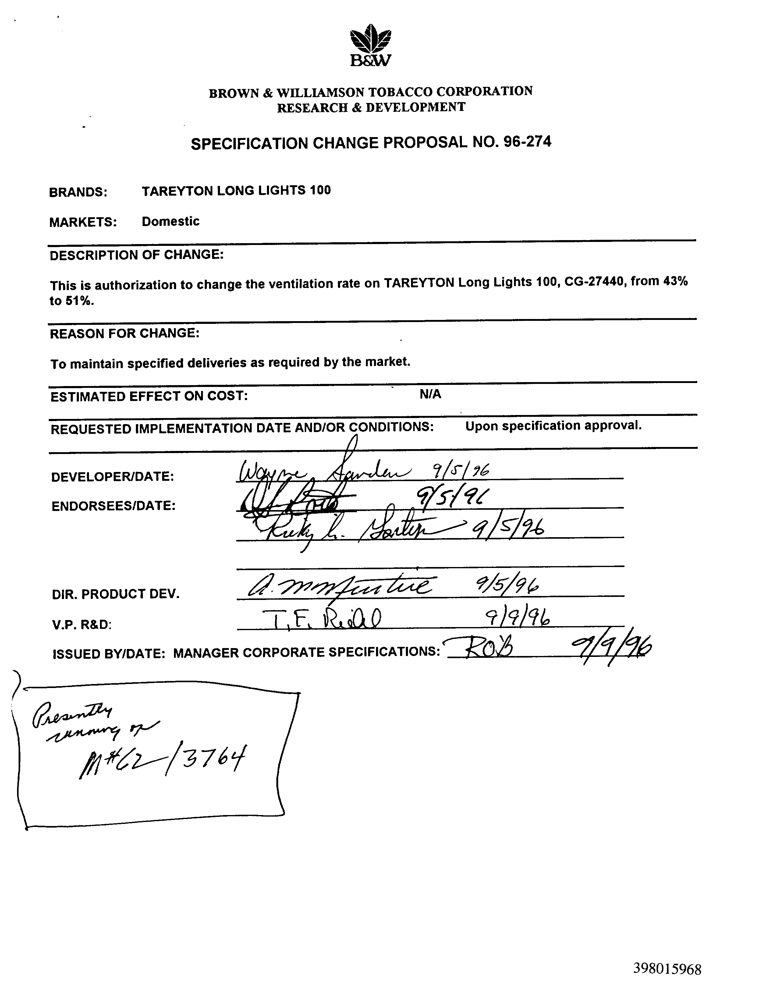 B&W
BROWN & WILLIAMSON TOBACCO CORPORATION
RESEARCH & DEVELOPMENT
SPECIFICATION CHANGE PROPOSAL NO. 96-274
BRANDS: TAREYTON LONG LIGHTS 100
MARKETS: Domestic
DESCRIPTION OF CHANGE:
This is authorization to change the ventilation rate on TAREYTON Long Lights 100, CG-27440, from 43%
to 51%.
REASON FOR CHANGE:
To maintain specified deliveries as required by the market.
ESTIMATED EFFECT ON COST: N/A
REQUESTED IMPLEMENTATION DATE AND/OR CONDITIONS: Upon specification approval.
DEVELOPER/DATE: Wayne 9/5/96
ENDORSEES/DATE: 9/5/96
9/5/96
DIR. PRODUCT DEV. 9/5/96
V.P. R&D: T.F. 9/9/96
ISSUED BY/DATE: MANAGER CORPORATE SPECIFICATIONS: 9/9/96
Presently
running
M#62-13764
398015968